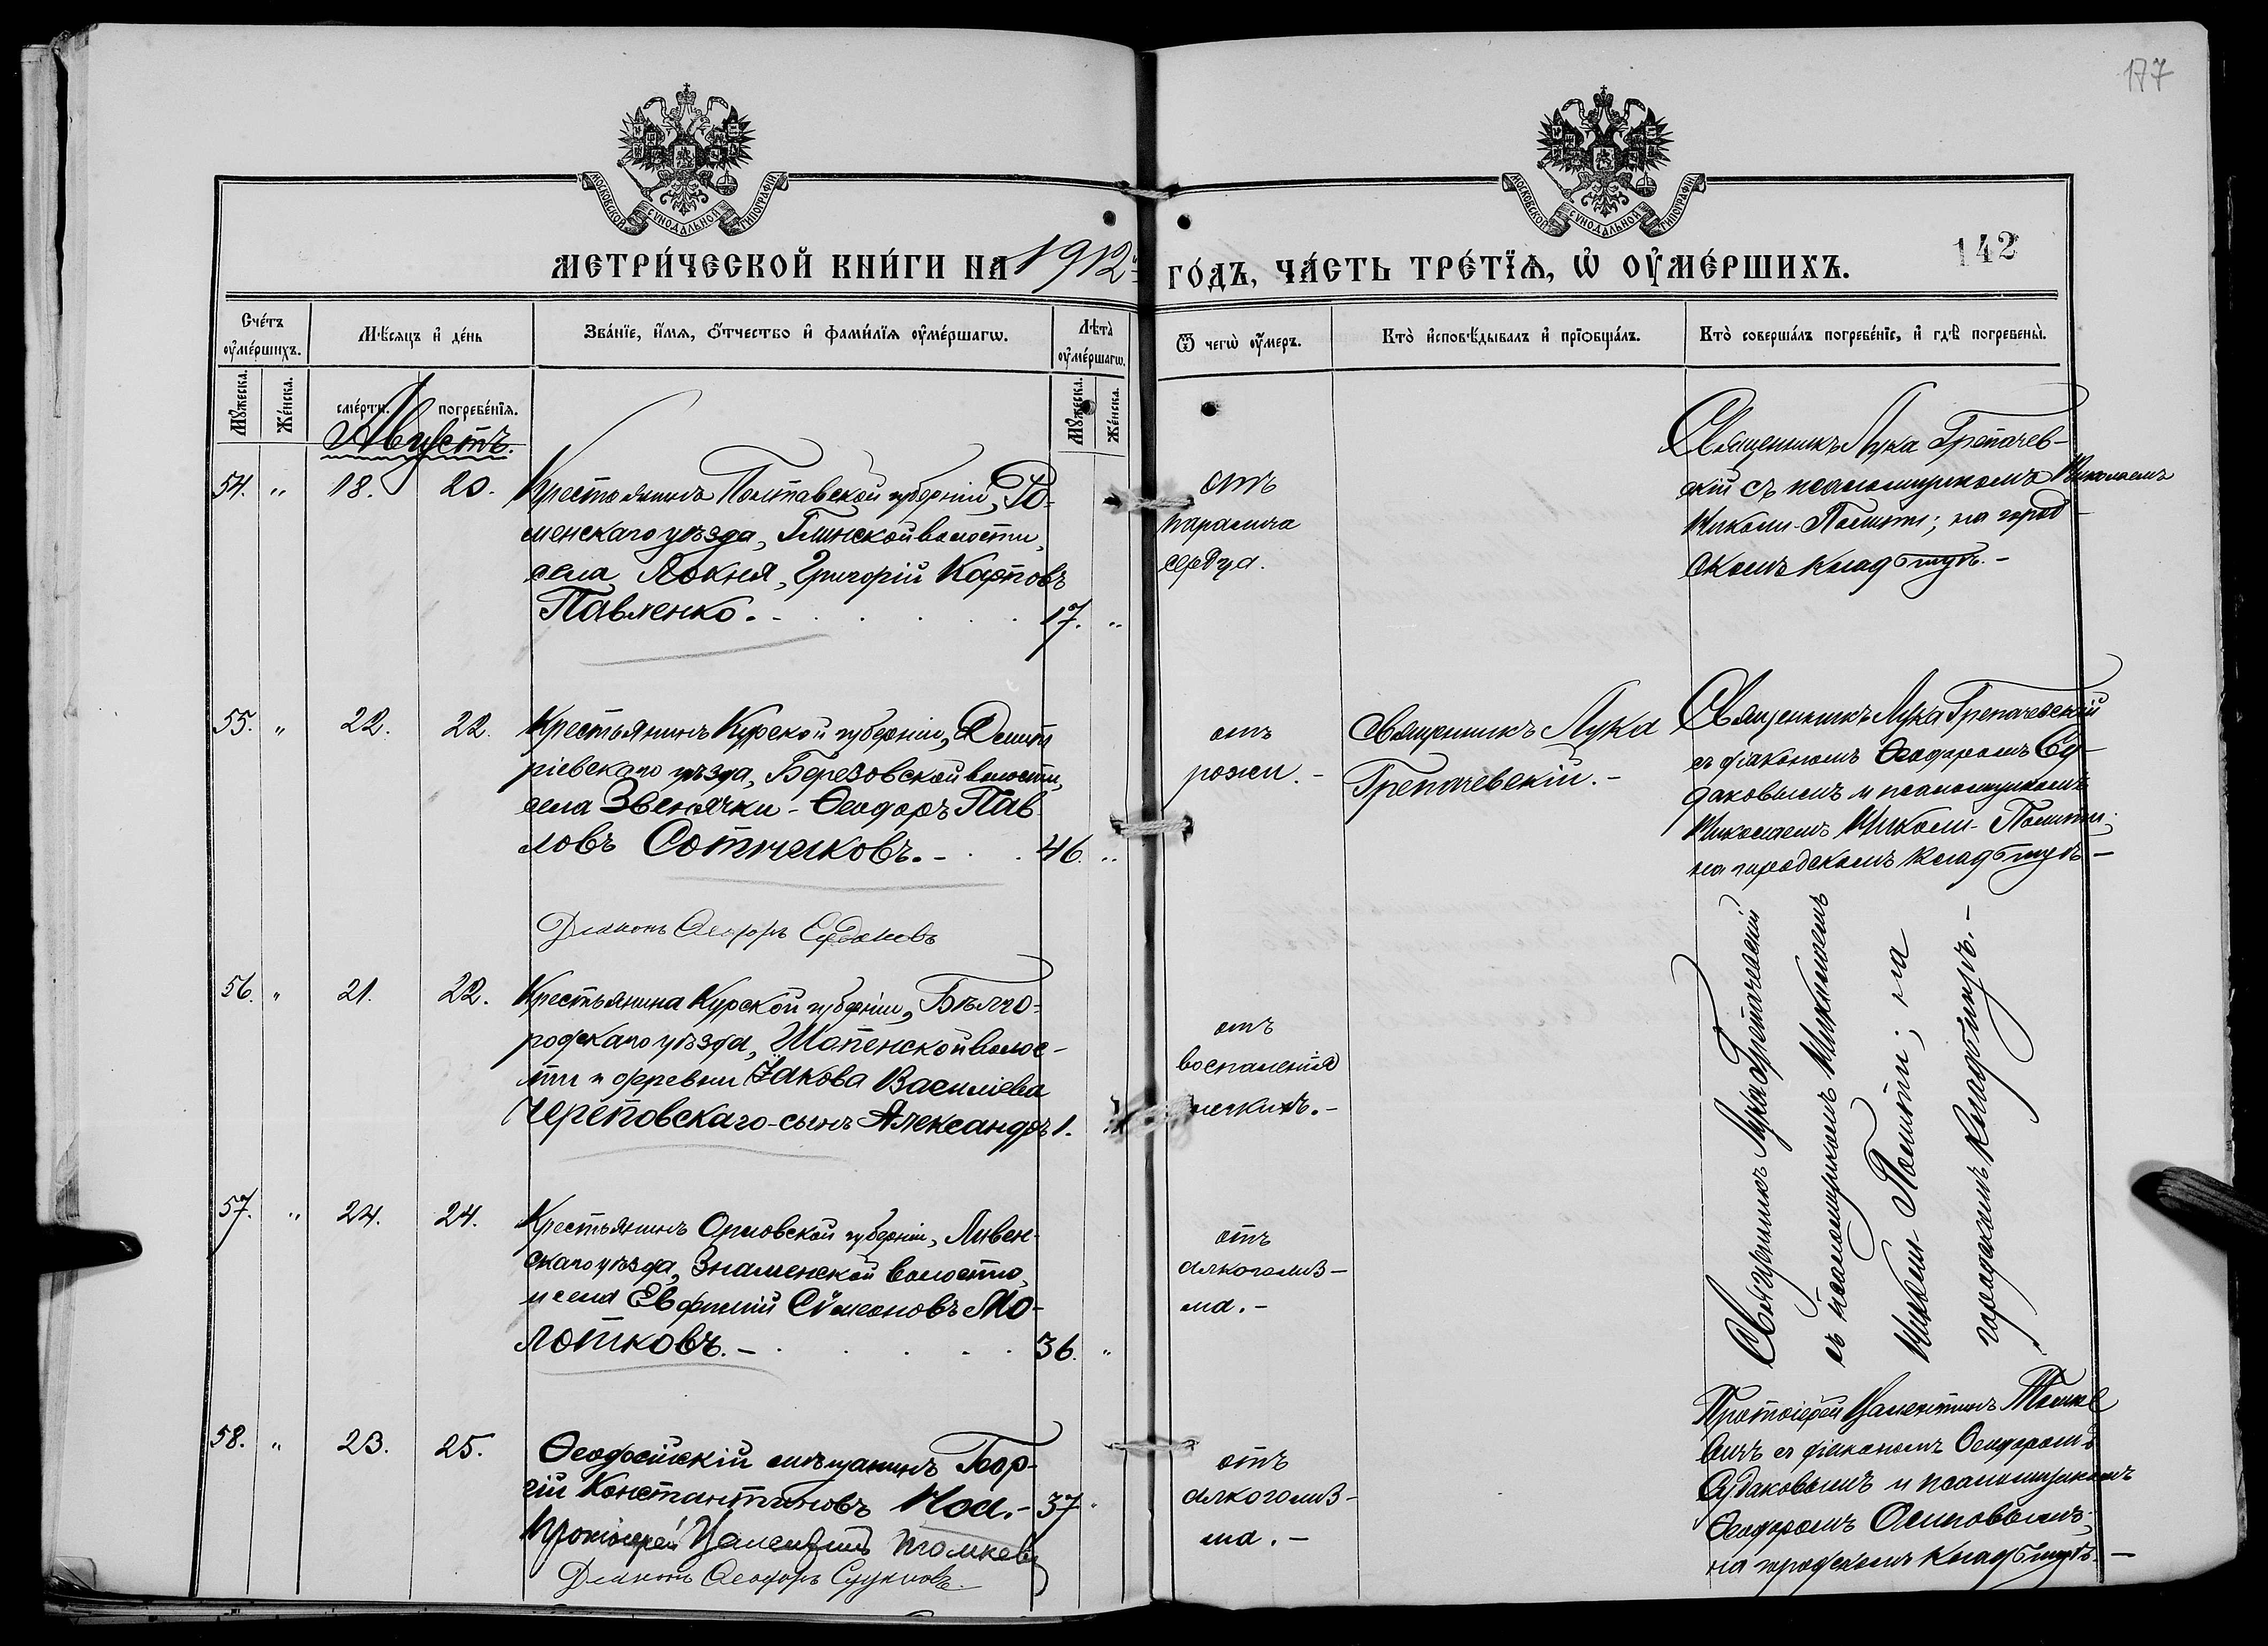 177
МОСКОВСКОЙ СѴНОДАЛЬНОЙ ТИПОГРАФІИ
МОСКОВСКОЙ СѴНОДАЛЬНОЙ ТИПОГРАФІИ
МЕТРИ́ЧЕСКОЙ КНИ́ГИ НА 1912 й
ГО́ДЪ, ЧА́СТЬ ТРЕ́ТЇѦ, Ѡ҆ ОУ҆МЕ́РШИХЪ.
142
Сче́тъ оу҆ме́ршихъ.
Мѣ́сѧцъ и҆ де́нь
Зва́нїе, и҆́мѧ, ѻ҆́тчество и҆ фами́лїѧ оу҆ме́ршагѡ.
Лѣ̀та оу҆ме́ршагѡ.
Ѿ чегѡ̀ оу҆́меръ.
Кто̀ и҆сповѣ́дывалъ и҆ прїѻбща́лъ.
Кто̀ соверша́лъ погребе́нїе, и҆ гдѣ̀ погребены̀.
Мꙋ́жеска.
Же́нска.
сме́рти.
погребе́нїѧ.
Мꙋ́жеска.
Же́нска.
Августъ.
54. " 18. 20.
Крестьянинъ Полтавской губерніи, Ро-
менскаго уѣзда, Глинской волости,
села Локня, Григорій Карповъ
Павленко. - 17. "
отъ
паралича
сердца.
Священникъ Лука Грепачев-
скій съ псаломщикомъ Николаемъ
Николи-Политти; на город-
скомъ кладбищѣ. -
55. " 22. 22.
Крестьянинъ Курской губерніи, Дмит
ріевскаго уѣзда, Березовской волости,
села Звенячки - Ѳеодоръ Пав
ловъ Сотниковъ. - 46. "
отъ
рожи. -
Священникъ Лука
Грепачевскій. -
Священникъ Лука Грепачевскій
съ діакономъ Ѳеодоромъ Су-
даковымъ и псаломщикомъ
Николаемъ Николи-Политти;
на городскомъ кладбищѣ -
Діаконъ Ѳеодоръ Судаковъ
56. " 21. 22.
Крестьянина Курской губерніи, Бѣлго-
родскаго уѣзда, Шопенской волос-
ти и деревни Іакова Василіева
Череповскаго - сынъ Александръ 1.
отъ
воспаленія
легкихъ. -
Священникъ Лука Грепачевскій
съ псаломщикомъ Николаемъ
Николи-Политти; на
городскомъ кладбищѣ. -
57. " 24. 24.
Крестьянинъ Орловской губерніи, Ливен-
скаго уѣзда, Знаменской волости,
и села Евфимій Сѵмеоновъ Мо-
лотковъ. - 36. "
отъ
алкоголиз-
ма. -
58. " 23. 25.
Ѳеодосійскій мѣщанинъ Геор-
гій Константиновъ - 37 "
отъ
алкоголиз-
ма. -
Протоіерей Валентинъ Томке
вичъ съ діакономъ Ѳеодоромъ
Судаковымъ и псаломщикомъ
Ѳеодоромъ Осиповымъ;
на городскомъ кладбищѣ. -
Протоіерей Валентинъ Томкевич
Діаконъ Ѳеодоръ Судаковъ.